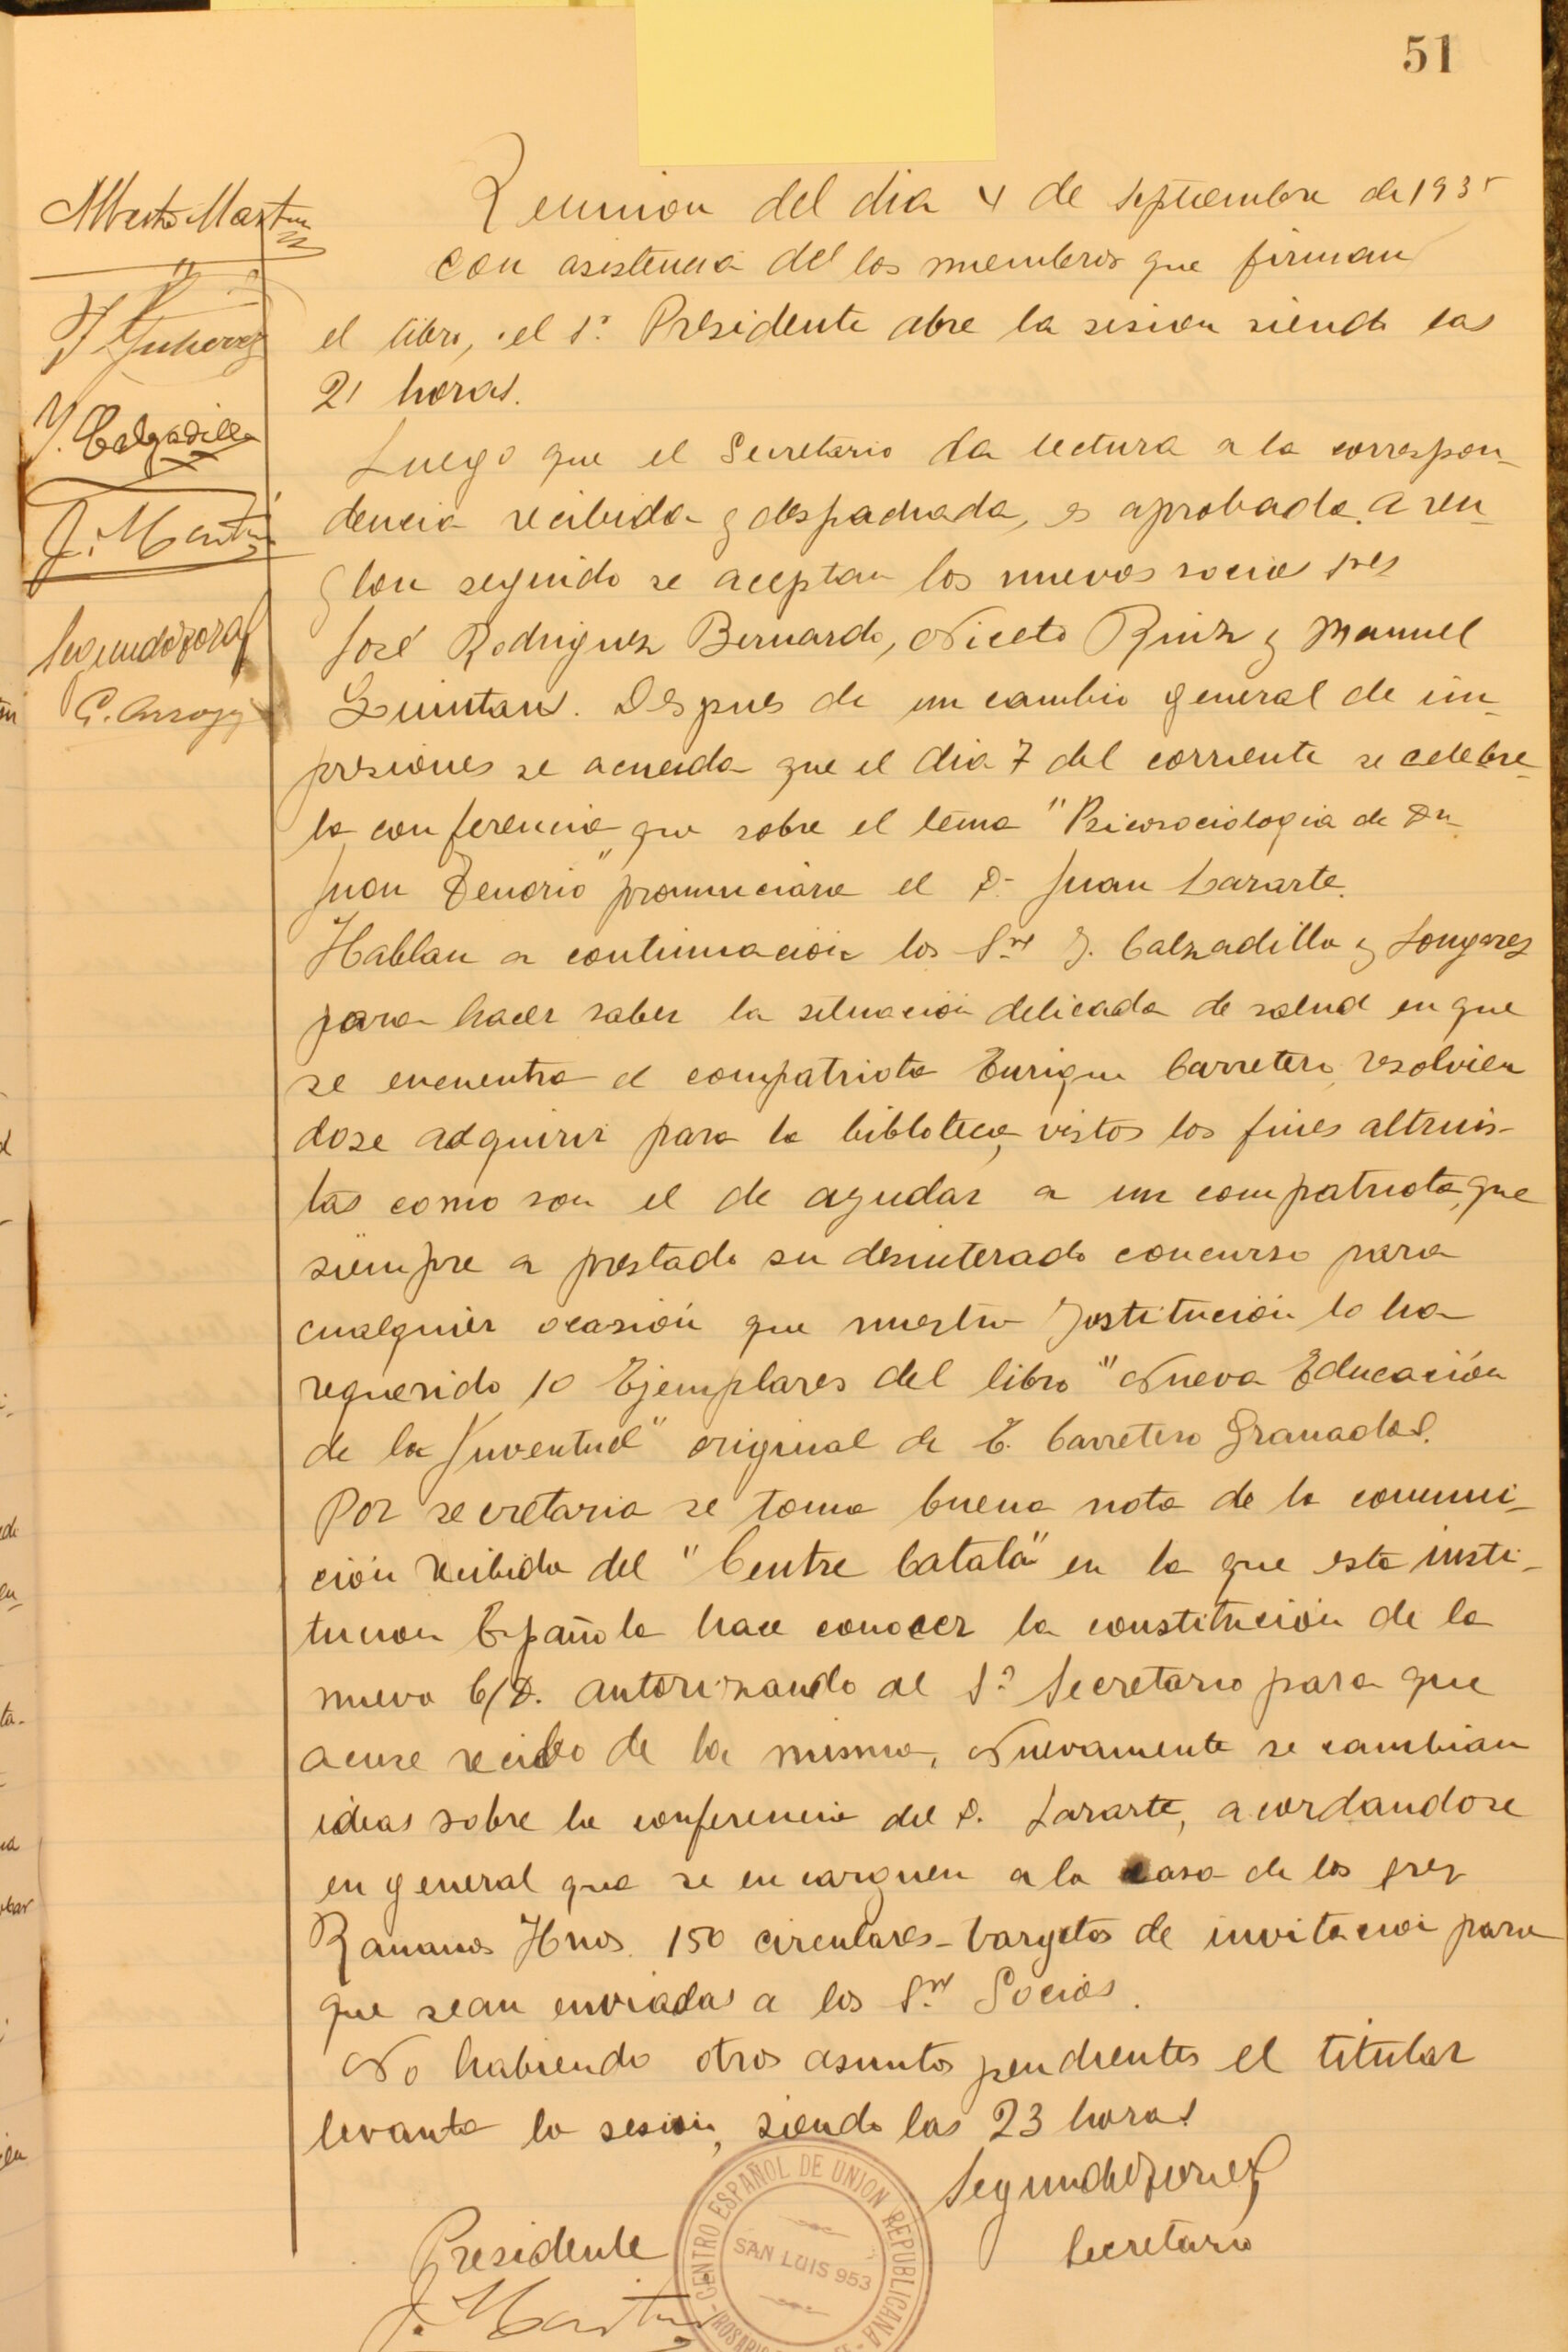 51
Alberto Martin
J. Calzadilla
J. Martin
G. Arroyo
Reunion del dia 4 de septiembre de 1935
con asistencia del los miembros que firman
el libro, el Sr. Presidente abre la sesion siendo las
21 horas.
Luego que el Secretario da lectura a la correspon-
dencia recibida y despachada, es aprobada. A ren-
glon seguido se aceptan los nuevos socios sres
José Rodriguez Bernardo, Niceto Ruiz y Manuel
Quintans. Despues de un cambio general de im-
presiones se acuerda que el dia 7 del corriente se celebre
la conferencia que sobre el tema "Psicosociologia de Dn
Juan Tenorio" pronunciara el D. Juan Lazarte.
Hablan a continuación los Srs J. Calzadilla y Longares
para hacer saber la situación delicada de salud en que
se encuentra el compatriota Enrique Carretero, resolvien
dose adquirir para la bibloteca, vistos los fines altruis-
tas como son el de ayudar a un compatriota, que
siempre a prestado su desinterado concurso para
cualquier ocasión que nuestra Institución lo ha
requerido 10 Ejemplares del libro "Nueva Educación
de la Juventud" original de E. Carretero Granados.
Por secretaria se toma buena nota de la comuni-
ción recibida del "Centre Catalá" en la que esta insti-
tucion Española hace conocer la constitución de la
nueva C/D. autorizando al Sr. Secretario para que
acuse recibo de la misma. Nuevamente se cambian
ideas sobre la conferencia del D. Lazarte, acordandose
en general que se encarguen a la casa de los sres
Romanos Hnos. 150 circulares-targetas de invitación para
que sean enviadas a los Srs Socios.
No habiendo otros asuntos pendientes el titular
levanta la sesión, siendo las 23 horas
Presidente
Secretario
J. Martin
CENTRO ESPAÑOL DE UNION REPUBLICANA
SAN LUIS 953